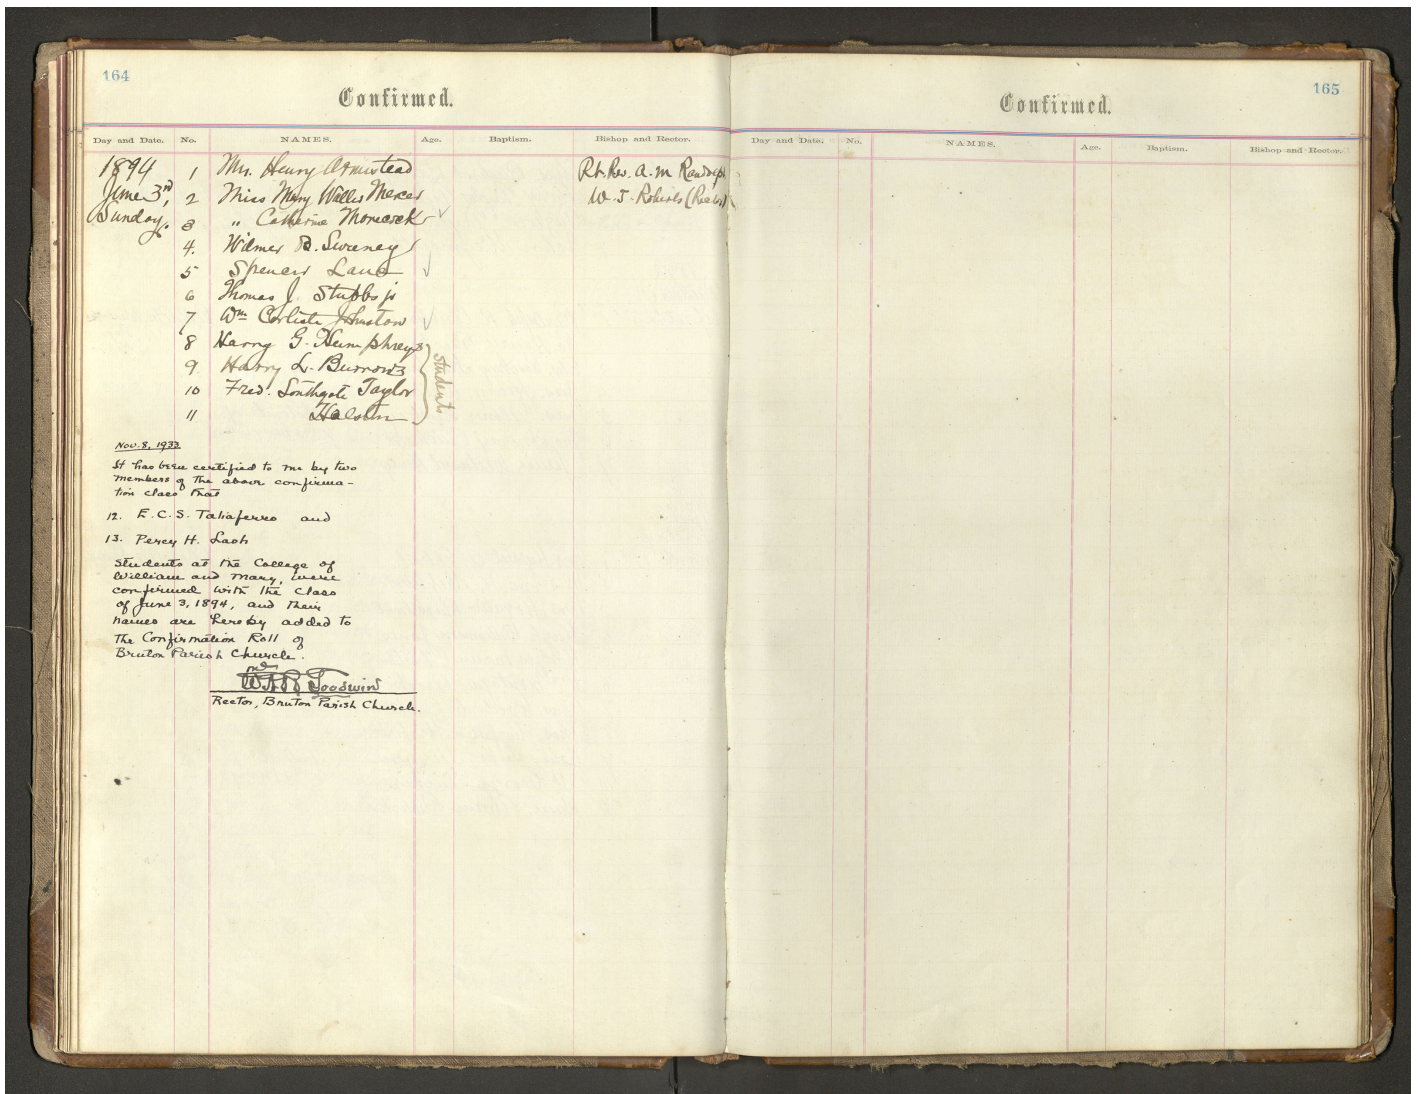 164
Confirmed.
Day and Date. No. NAMES. Age. Baptism. Bishop and Rector.
1894 1 Mrs. Henry Armistead Rt. Rev. A. M. Randolph
June 3rd, 2 Miss Mary Wallis Mercer W. T. Roberts (Rector)
Sunday. 3 " Catherine Morecock
4. Wilmer D. Sweeney
5 Spencer Lane
6 Thomas J. Stubbs jr
7 Wm Carlisle Johnston
8 Harry G. Humphreys
9. Harry L. Burrows
10 Fred. Southgate Taylor
11 Halston
Students
Nov. 8, 1933
It has been certified to me by two
members of the above confirma-
tion class that
12. E.C.S. Taliaferro and
13. Percy H. Lash
students at the College of
William and Mary, were
confirmed with the class
of June 3, 1894, and their
names are hereby added to
the Confirmation Roll of
Bruton Parish Church.
Goodwin
Rector, Bruton Parish Church.
165
Confirmed.
Day and Date. No. NAMES. Age. Baptism. Bishop and Rector.